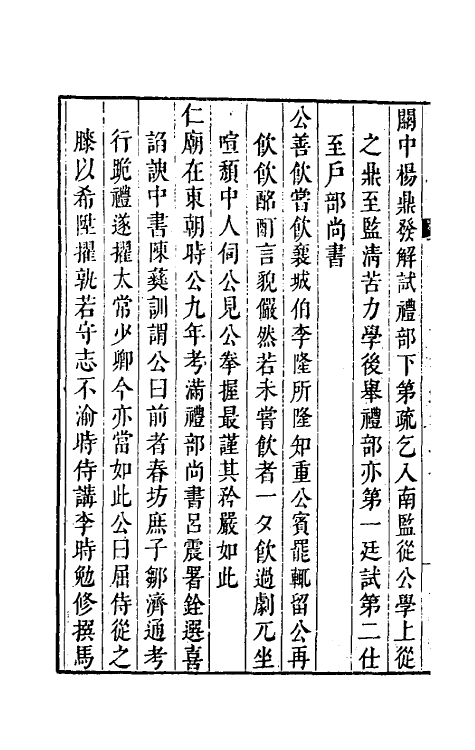 關中楊鼎發解試禮部下第疏乞入南監從公學上從
之鼎至監淸苦力學後舉禮部亦第一廷試第二仕
至戶部尚書
公善飲嘗飲襄城伯李隆所隆知重公賓罷輒留公再
飲飲酩酊言貌儼然若未嘗飲者一夕飲過劇兀坐
喧頮中人伺公見公拳握最謹其矜嚴如此
仁廟在東朝時公九年考滿禮部尚書呂震署銓選喜
諂諛中書陳蕤訓謂公曰前者春坊庶子鄒濟通考
行跪禮遂擢太常少卿今亦當如此公曰屈侍從之
膝以希陞擢孰若守志不渝時侍講李時勉修撰馬